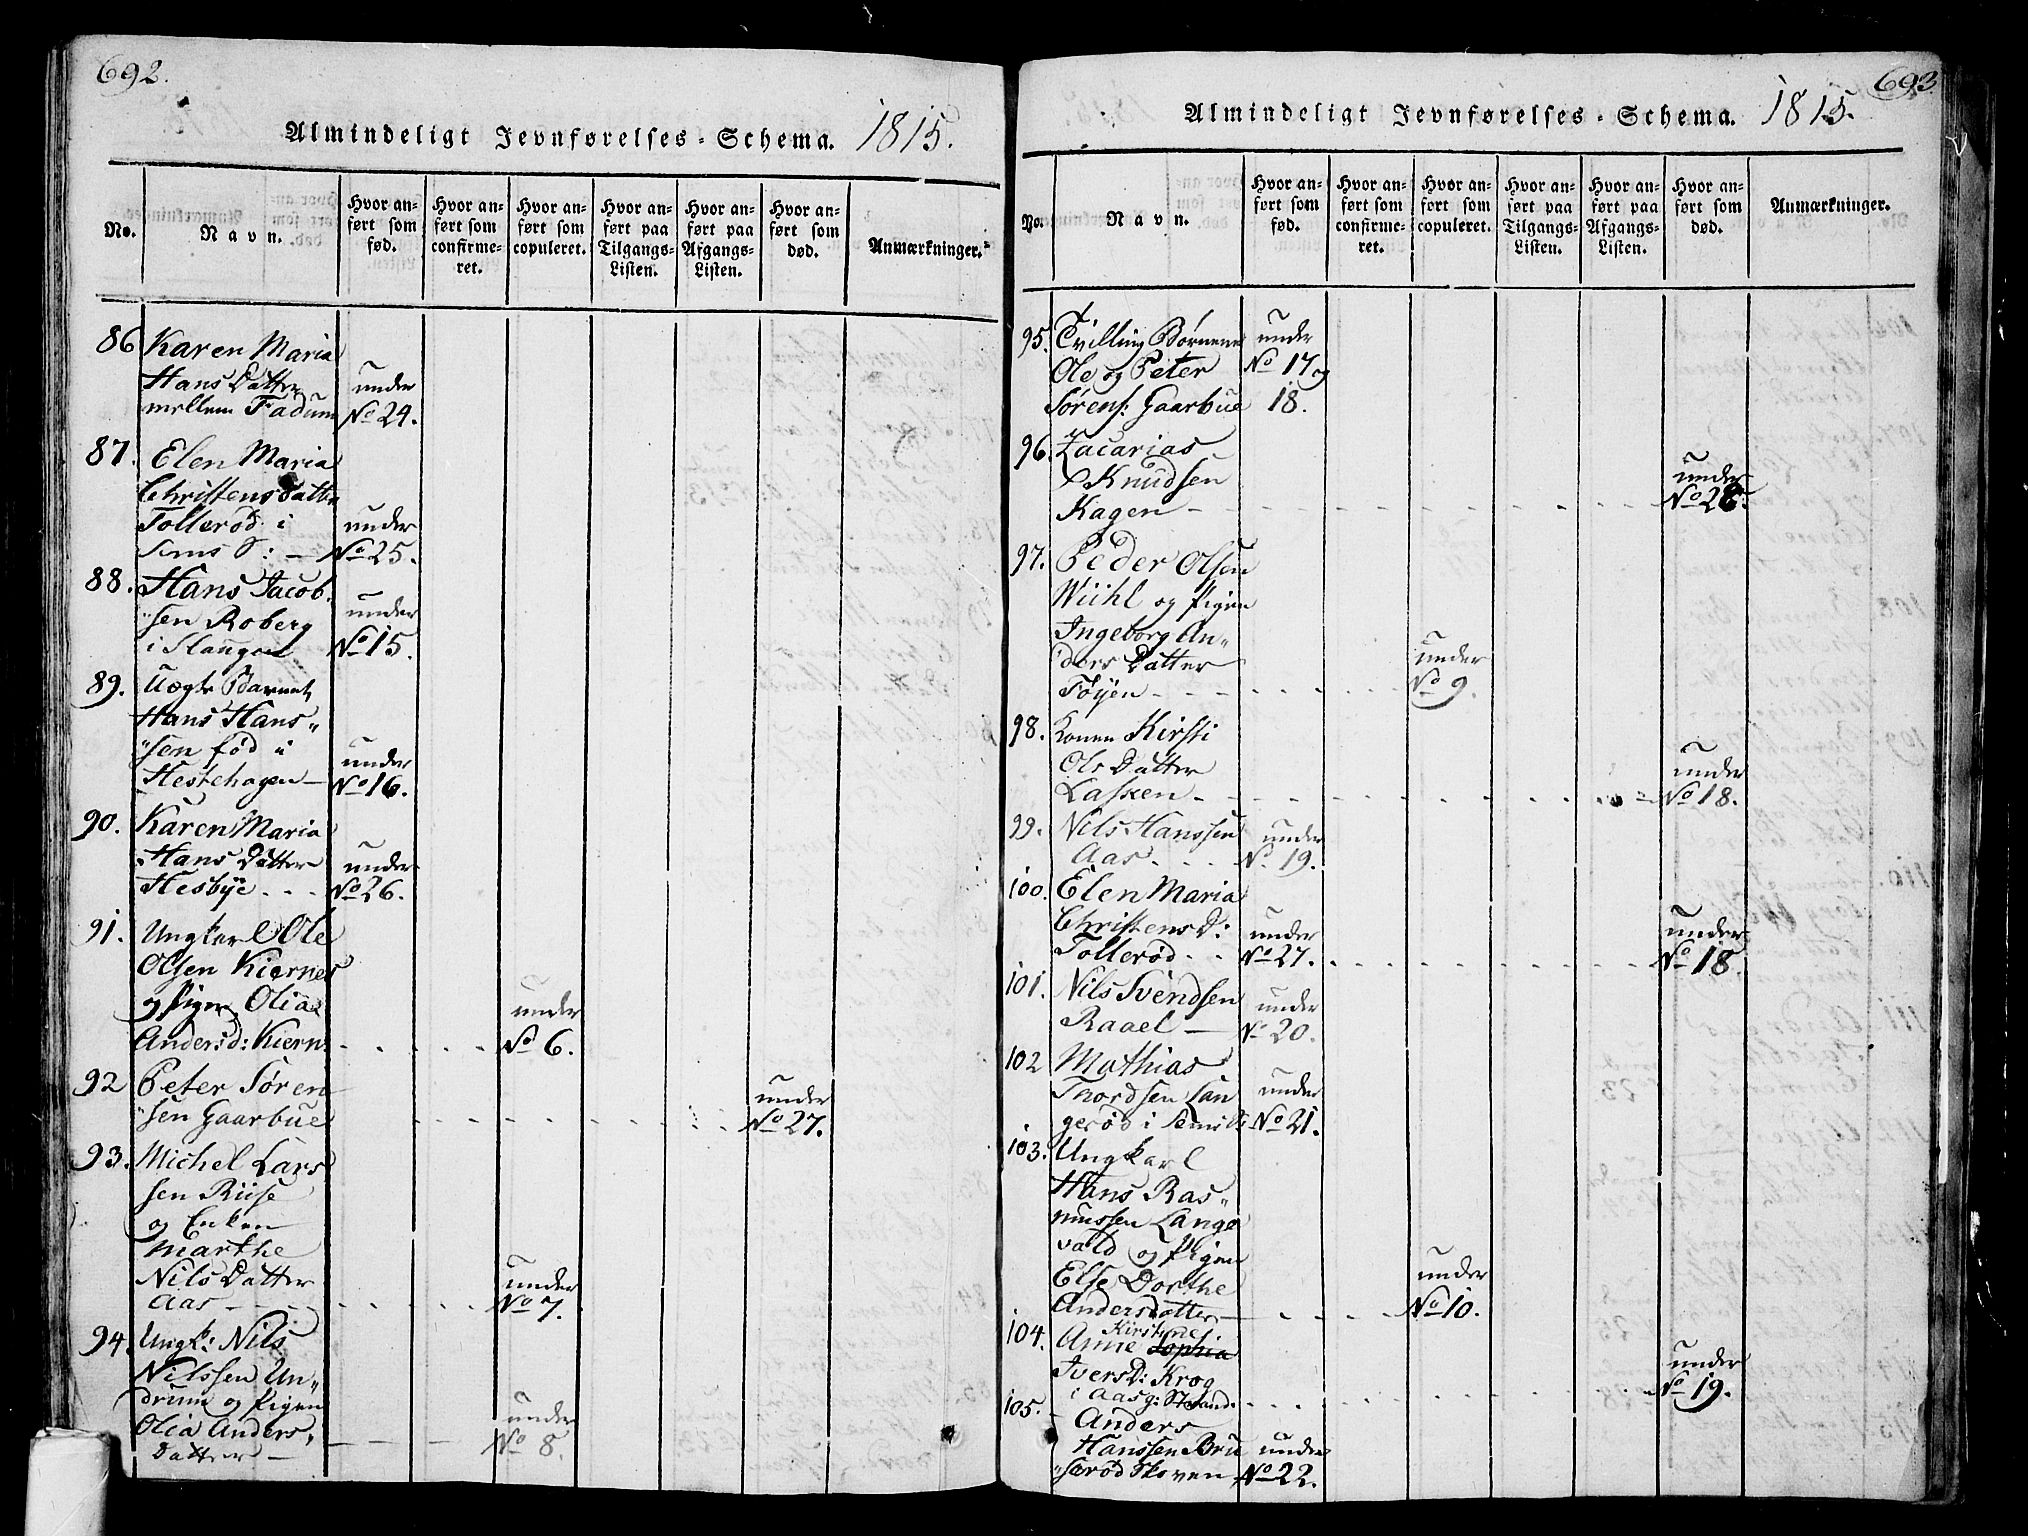 692.
Almindeligt Jevnførelses-Schema. 1815.
No.
Navn.
Hvor an-
ført som
fød.
Hvor an-
ført som
confirme-
ret.
Hvor an-
ført som
copuleret.
Hvor an-
ført paa
Tilgangs-
Listen.
Hvor an-
ført paa
Afgangs-
Listen.
Hvor an-
ført som
død.
Anmærkninger.
86 Karen Maria
Hans Datter under
mellem Fadum No 24.
87. Elen Maria
Christensdatter
Tollerød i under
Sems S: No 25.
88. Hans Jacob-
sen Roberg under
i Slangen No 15.
89. Uægte Barnet
Hans Hans-
sen fød i under
Hestehagen No 16.
90. Karen Maria
Hans Datter under
Hesbye No 26.
91. Ungkarl Ole
Olsen Kiernes
og Pigen Olia under
Andersd: Kiern No 6.
92 Peter Søren- under
sen Gaarbue No 27.
93. Michel Lars
sen Riise
og Enken
Marthe
Nils Datter under
Aas No 7.
94. Ungk: Nils
Nilssen Un-
drum og Pigen under
Olia Anders No 8.
Datter
693
Almindeligt Jevnførelses-Schema. 1815.
No.
Navn.
Hvor an-
ført som
fød.
Hvor an-
ført som
confirme-
ret.
Hvor an-
ført som
copuleret.
Hvor an-
ført paa
Tilgangs-
Listen.
Hvor an-
ført paa
Afgangs-
Listen.
Hvor an-
ført som
død.
Anmærkninger.
95. Tvilling Børnene under
Ole og Peter No 17 og
Sørens: Gaarbue 18.
96. Zacarias
Knudsen under
Kagen No 28.
97. Peder Olsen
Wiihl og Pigen
Ingeborg An-
ders Datter under
Tøyen No 9.
98. Konen Kirsti
Ols Datter under
Lasken No 18.
99. Nils Hanssen under
Aas No 19.
100. Elen Maria
Christens D: under under
Tollerød No 27. No 18.
101. Nils Svendsen under
Raael No 20.
102 Mathias
Thordsen Lan under
gerød i Sems S: No 21.
103. Ungkarl
Hans Ras-
mussen Lange
vald og Pigen
Else Dorthe under
Andersdatter No 10.
Kirstine
104. Anne Sophia
Ivers D: Krog under
i Aasg: Strand No 19.
105. Anders
Hanssen Bru under
serød Skoven No 22.